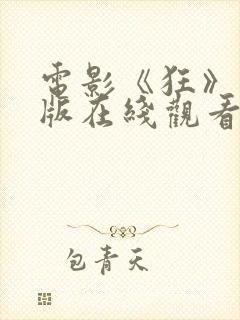 電影《狂》
版在綫觀看
包青天